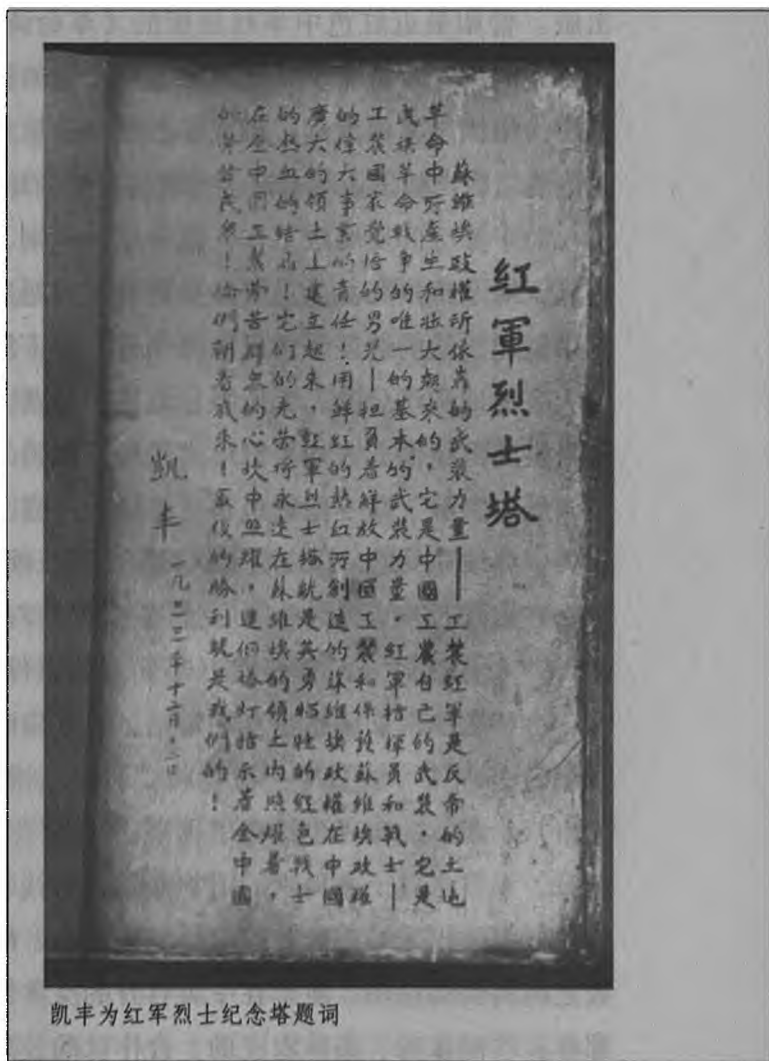 紅軍烈士塔
蘇維埃政權所依靠的武裝力量——工農紅軍是反帝的土地
革命中所產生和壯大起來的,它是中國工農自己的武裝,它是
民族革命戰爭的唯一的基本的武裝力量。紅軍指揮員和戰士—
工農國家覺悟的男兒—担負着解放中國工農和保護蘇維埃政權
的偉大事業的責任!用鮮紅的熱血所創造的蘇維埃政權在中國
廣大的領土上建立起来,紅軍烈士塔就是英勇犧牲的紅色戰士
的熱血的結晶!它们的光荣将永遠在蘇維埃的領土内照耀着,
在全中國工農勞苦群衆的心坎中照耀,這個塔灯指示着全中國
的勞苦民衆!你們朝着我来!最後的勝利就是我們的!
凱丰
一九三三年十二月
凯丰为红军烈士纪念塔题词